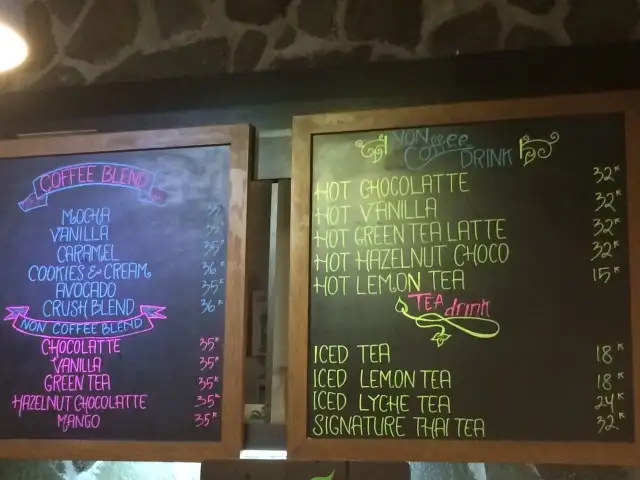 COFFEE BLEND
MOCHA 35K
VANILLA 35K
CARAMEL 35K
COOKIES & CREAM 36K
AVOCADO 35K
CRUSH BLEND 36K
NON COFFEE BLEND
CHOCOLATTE 35K
VANILLA 35K
GREEN TEA 35K
HAZELNUT CHOCOLATTE 35K
MANGO 35K
NON
COFFEE DRINK
HOT CHOCOLATTE 32K
HOT VANILLA 32K
HOT GREEN TEA LATTE 32K
HOT HAZELNUT CHOCO 32K
HOT LEMON TEA 15K
TEA drink
ICED TEA 18K
ICED LEMON TEA 18K
ICED LYCHE TEA 24K
SIGNATURE THAI TEA 32K